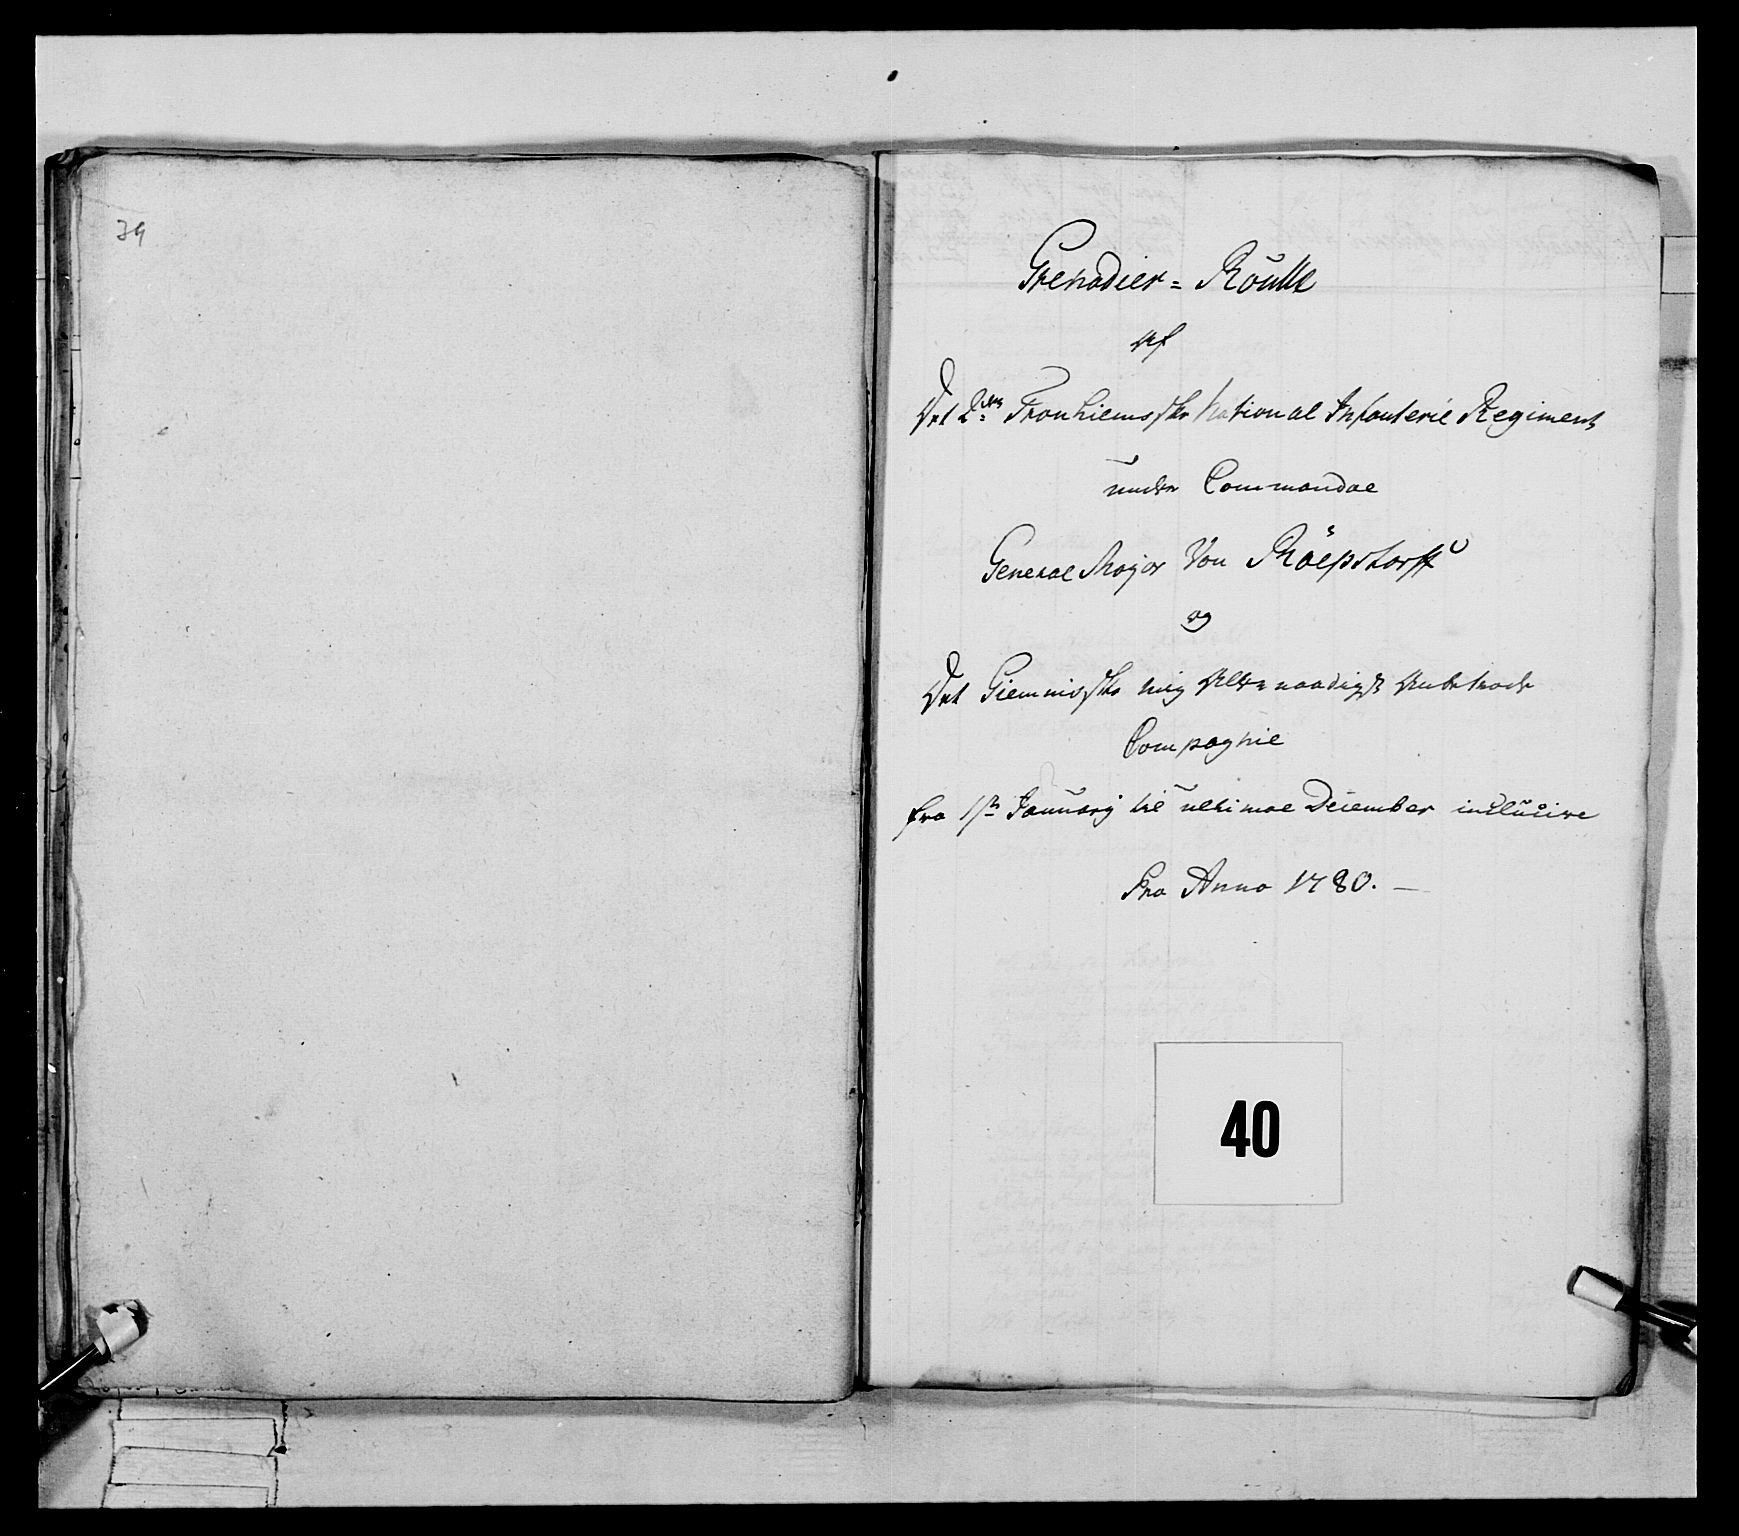 39
Grenadier = Roulle
af
Det 2den Tronhiemsske National Infanterie Regiment
under Commandoe
General Major Von Röepstorff
og
Det Giemnisske mig Allernaadigst Anbetroede
Compagnie
fra 1ste January til ultimoe December inclusive
Pro Anno 1780. —
40